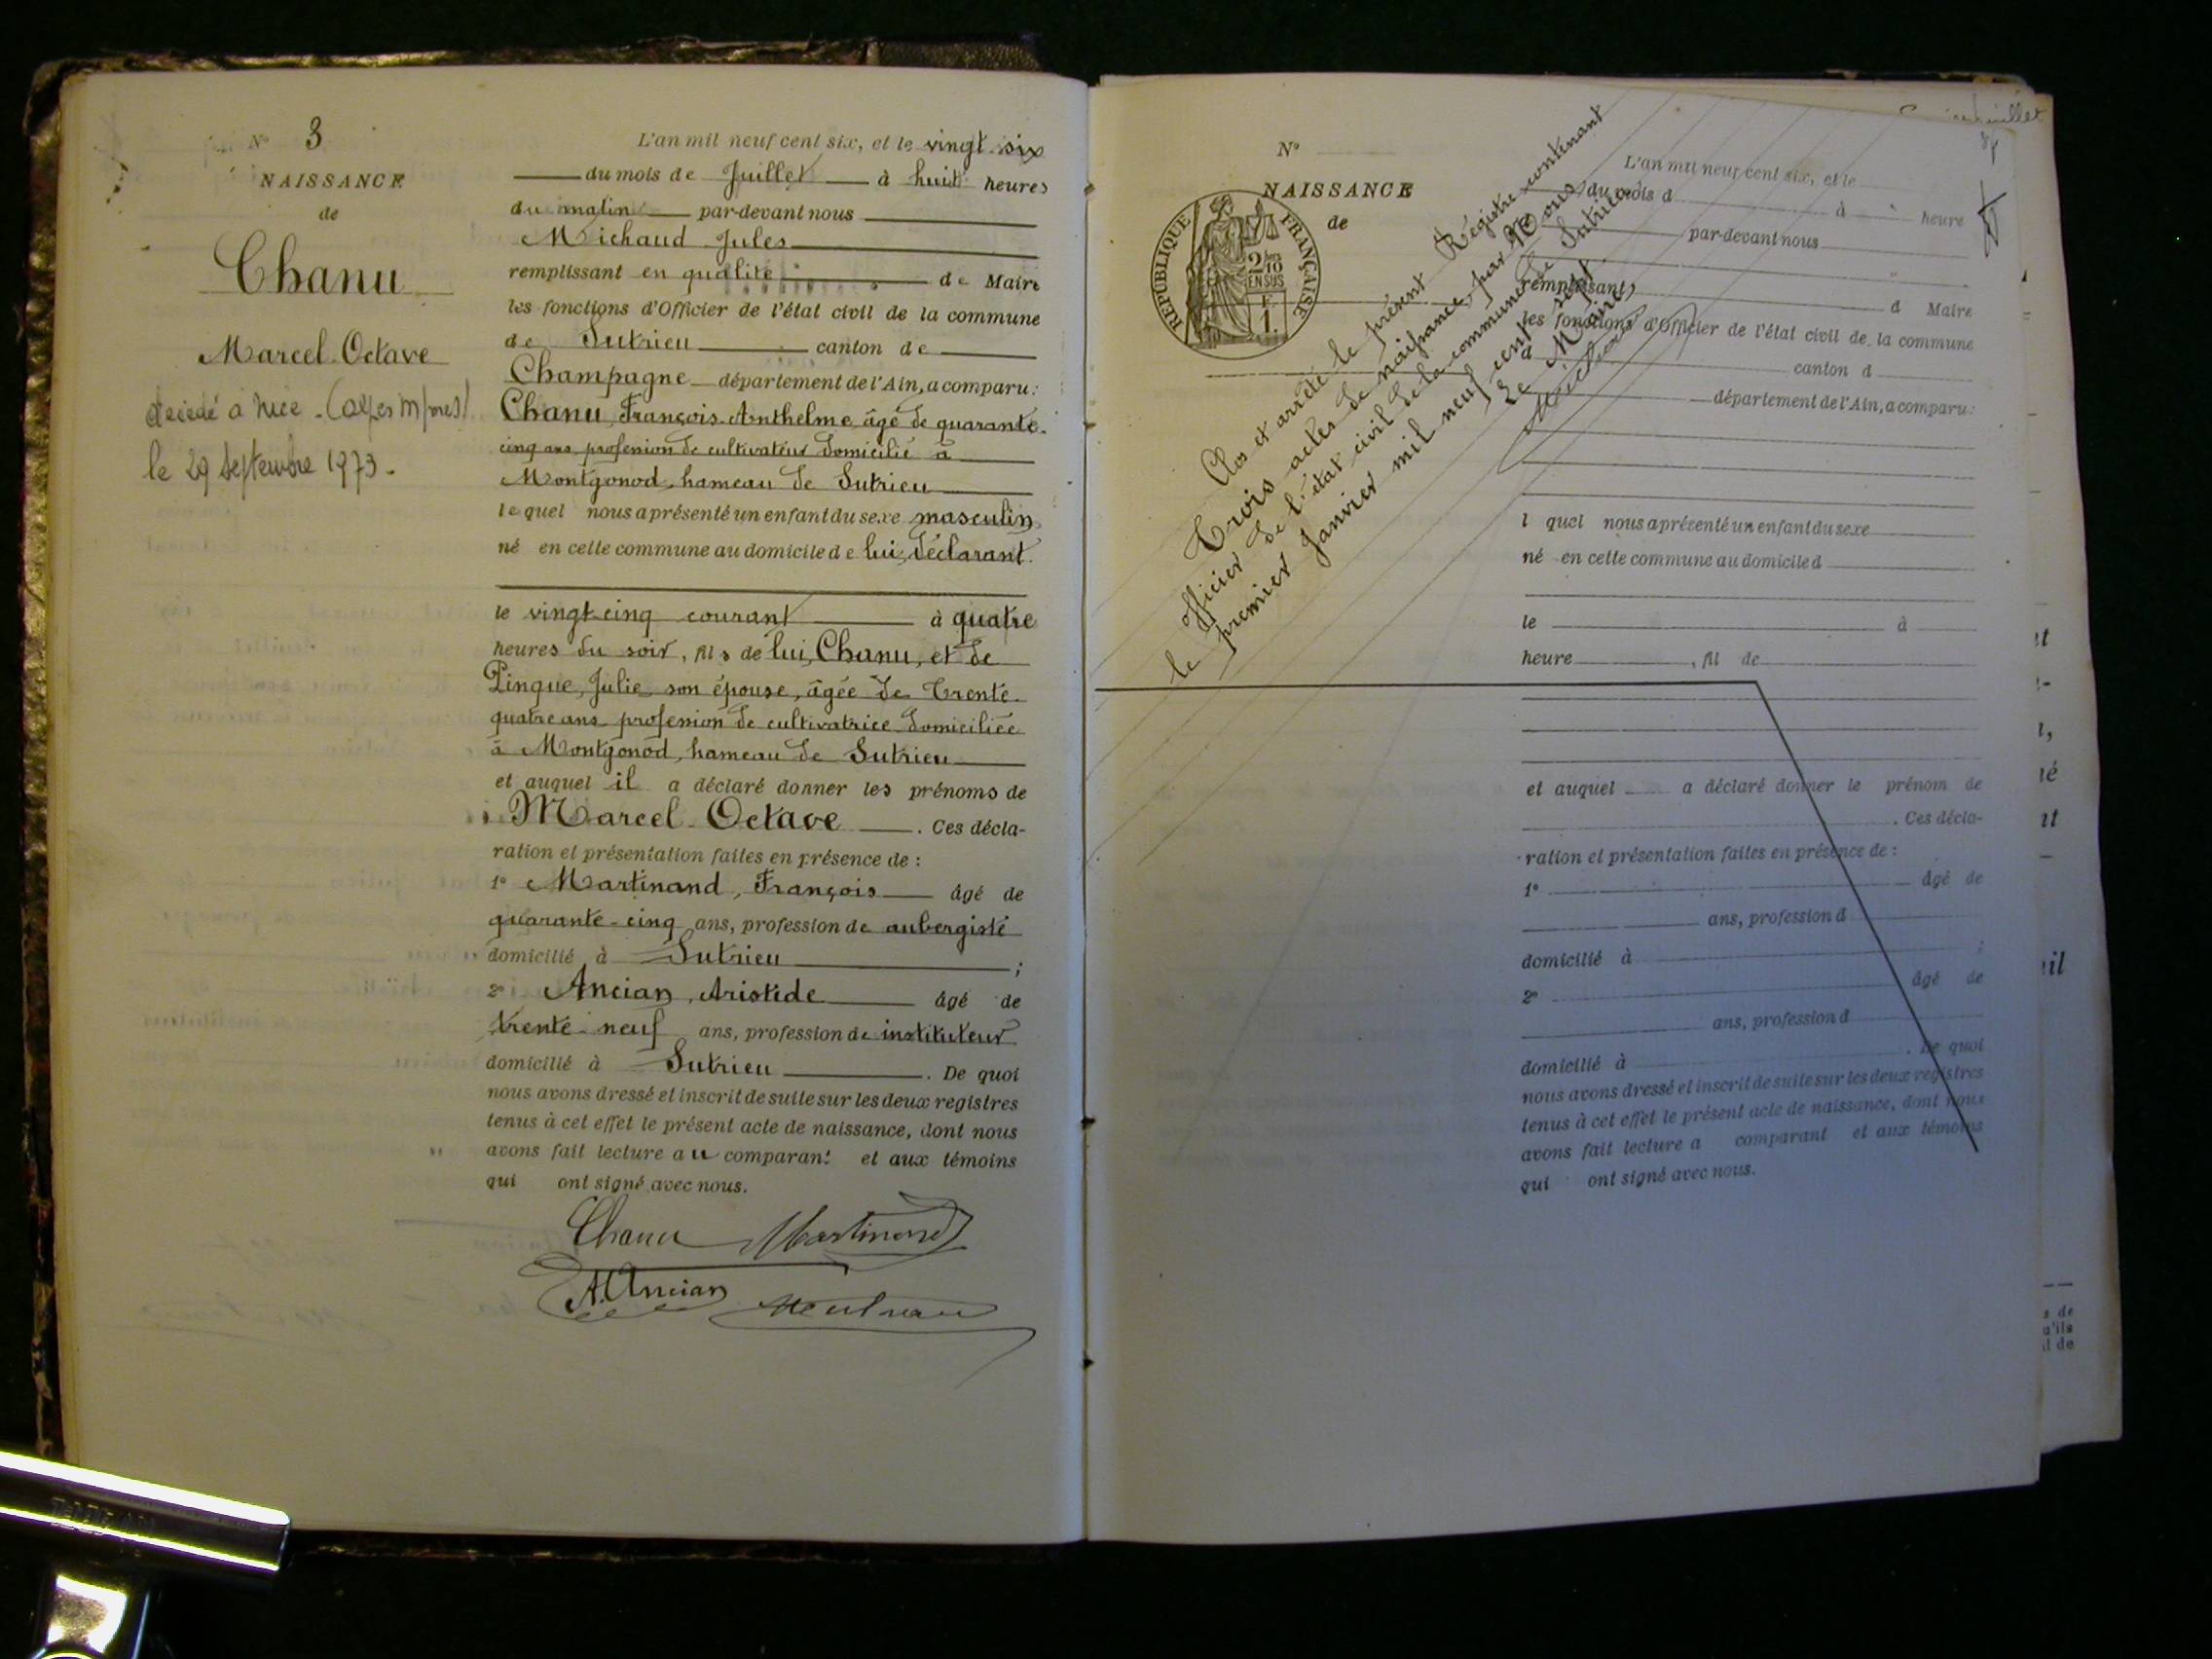 N° 3
NAISSANCE
de
Chanu
Marcel-Octave
décédé à Nice - (Alpes Mmes)
le 29 Septembre 1973 -
L'an mil neuf cent six, et le vingt-six
du mois de Juillet à huit heures
du matin par-devant nous
Michaud Jules
remplissant en qualité de Maire
les fonctions d'Officier de l'état civil de la commune
de Sutrieu canton de
Champagne département de l'Ain, a comparu :
Chanu, François-Anthelme, âgé de quarante-
cinq ans, profession de cultivateur domicilié à
Montgonod, hameau de Sutrieu
lequel nous a présenté un enfant du sexe masculin
né en cette commune au domicile de lui, déclarant.
le vingt-cinq courant à quatre
heures du soir, fils de lui, Chanu, et de
Pingue, Julie, son épouse, âgée de trente-
quatre ans profession de cultivatrice domiciliée
à Montgonod, hameau de Sutrieu
et auquel il a déclaré donner les prénoms de
Marcel-Octave . Ces décla-
ration et présentation faites en présence de :
1° Martinand, François âgé de
quarante-cinq ans, profession de aubergiste
domicilié à Sutrieu ;
2° Ancian, Aristide âgé de
trente-neuf ans, profession de instituteur
domicilié à Sutrieu . De quoi
nous avons dressé et inscrit de suite sur les deux registres
tenus à cet effet le présent acte de naissance, dont nous
avons fait lecture au comparant et aux témoins
qui ont signé avec nous.
Chanu Martinand
A. Ancian
N°
NAISSANCE
de
RÉPUBLIQUE FRANÇAISE
2/10
EN SUS
1
Clos et arrêté le présent Régistre contenant
Trois actes de naissance, par Nous
officier de l'état civil de la commune de Sutrieu
le premier Janvier mil neuf cent sept.
Le Maire,
Michaud
L'an mil neuf cent six, et le
du mois d à heure
par-devant nous
remplissant d Maire
les fonctions d'Officier de l'état civil de la commune
d canton d
département de l'Ain, a comparu :
l quel nous a présenté un enfant du sexe
né en cette commune au domicile d
le à
heure , fil de
et auquel a déclaré donner le prénom de
. Ces décla-
ration et présentation faites en présence de :
1° âgé de
ans, profession d
domicilié à ;
2° âgé de
ans, profession d
domicilié à . De quoi
nous avons dressé et inscrit de suite sur les deux registres
tenus à cet effet le présent acte de naissance, dont nous
avons fait lecture a comparant et aux témoins
qui ont signé avec nous.